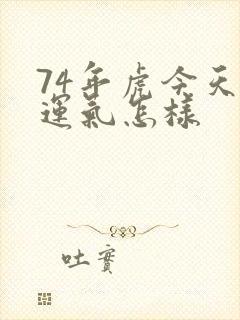 74年虎今天
運氣怎樣
吐實